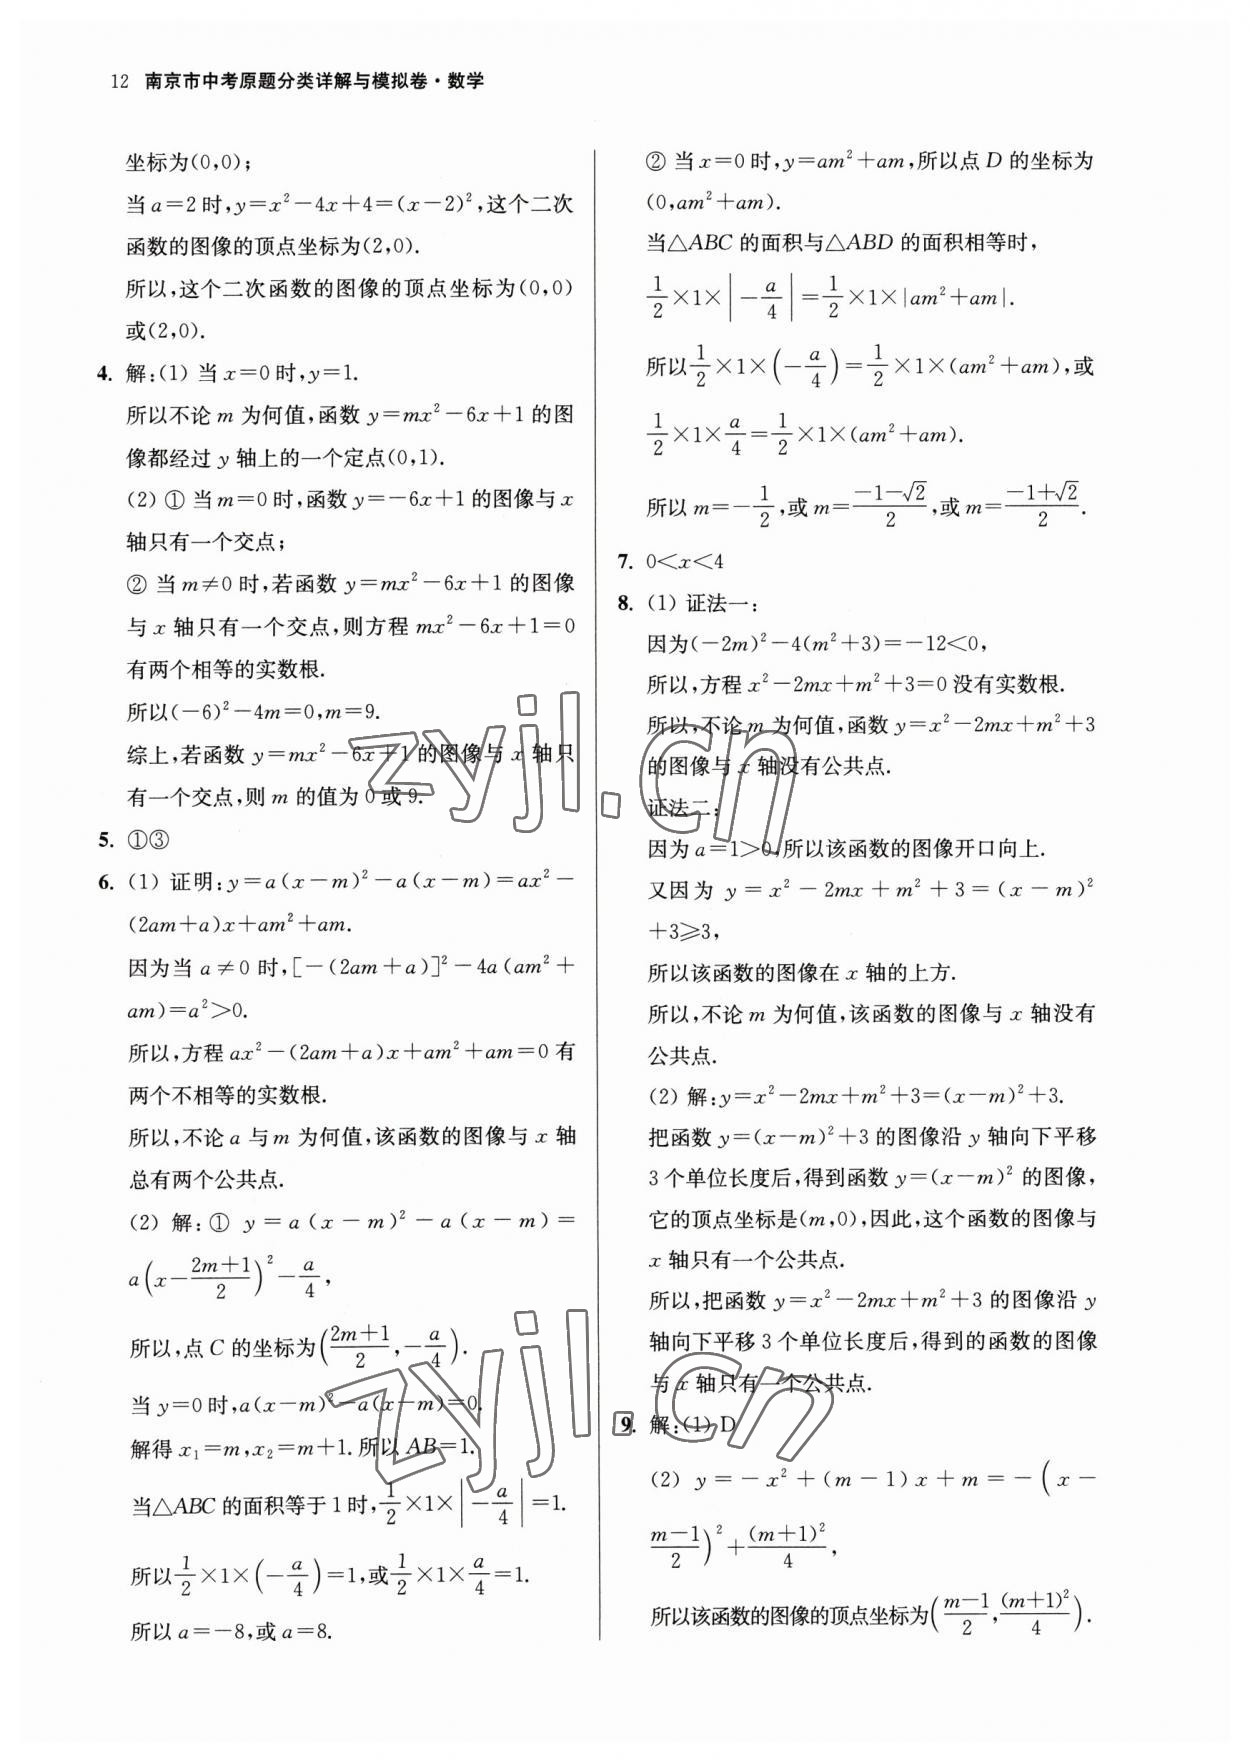 12 南京市中考原题分类详解与模拟卷·数学
坐标为(0,0);
当a=2时,y=x²-4x+4=(x-2)²,这个二次
函数的图像的顶点坐标为(2,0).
所以,这个二次函数的图像的顶点坐标为(0,0)
或(2,0).
4. 解:(1) 当x=0时,y=1.
所以不论 m 为何值,函数 y=mx²-6x+1 的图
像都经过 y 轴上的一个定点(0,1).
(2) ① 当m=0时,函数 y=-6x+1 的图像与 x
轴只有一个交点;
② 当m≠0时,若函数 y=mx²-6x+1 的图像
与 x 轴只有一个交点,则方程 mx²-6x+1=0
有两个相等的实数根.
所以(-6)²-4m=0,m=9.
综上,若函数 y=mx²-6x+1 的图像与 x 轴只
有一个交点,则 m 的值为 0 或 9.
5. ①③
6. (1) 证明:y=a(x-m)²-a(x-m)=ax²-
(2am+a)x+am²+am.
因为当 a≠0 时,[-(2am+a)]²-4a(am²+
am)=a²>0.
所以,方程 ax²-(2am+a)x+am²+am=0 有
两个不相等的实数根.
所以,不论 a 与 m 为何值,该函数的图像与 x 轴
总有两个公共点.
(2) 解:① y=a(x-m)²-a(x-m)=
a(x-\frac{2m+1}{2})²-\frac{a}{4},
所以,点 C 的坐标为(\frac{2m+1}{2},-\frac{a}{4}).
当 y=0时,a(x-m)²-a(x-m)=0.
解得 x₁=m,x₂=m+1.所以 AB=1.
当△ABC 的面积等于 1 时,\frac{1}{2}×1×|-\frac{a}{4}|=1.
所以\frac{1}{2}×1×(-\frac{a}{4})=1,或\frac{1}{2}×1×\frac{a}{4}=1.
所以 a=-8,或 a=8.
② 当 x=0 时,y=am²+am,所以点 D 的坐标为
(0,am²+am).
当△ABC 的面积与△ABD 的面积相等时,
\frac{1}{2}×1×|-\frac{a}{4}|=\frac{1}{2}×1×|am²+am|.
所以\frac{1}{2}×1×(-\frac{a}{4})=\frac{1}{2}×1×(am²+am),或
\frac{1}{2}×1×\frac{a}{4}=\frac{1}{2}×1×(am²+am).
所以 m=-\frac{1}{2},或 m=\frac{-1-√2}{2},或 m=\frac{-1+√2}{2}.
7. 0<x<4
8. (1) 证法一:
因为(-2m)²-4(m²+3)=-12<0,
所以,方程 x²-2mx+m²+3=0 没有实数根.
所以,不论 m 为何值,函数 y=x²-2mx+m²+3
的图像与 x 轴没有公共点.
证法二:
因为 a=1>0,所以该函数的图像开口向上.
又因为 y=x²-2mx+m²+3=(x-m)²
+3≥3,
所以该函数的图像在 x 轴的上方.
所以,不论 m 为何值,该函数的图像与 x 轴没有
公共点.
(2) 解:y=x²-2mx+m²+3=(x-m)²+3.
把函数 y=(x-m)²+3 的图像沿 y 轴向下平移
3 个单位长度后,得到函数 y=(x-m)² 的图像,
它的顶点坐标是(m,0),因此,这个函数的图像与
x 轴只有一个公共点.
所以,把函数 y=x²-2mx+m²+3 的图像沿 y
轴向下平移 3 个单位长度后,得到的函数的图像
与 x 轴只有一个公共点.
9. 解:(1) D
(2) y=-x²+(m-1)x+m=-(x-
\frac{m-1}{2})²+\frac{(m+1)²}{4},
所以该函数的图像的顶点坐标为(\frac{m-1}{2},\frac{(m+1)²}{4}).
zyjl.cn
zyjl.cn